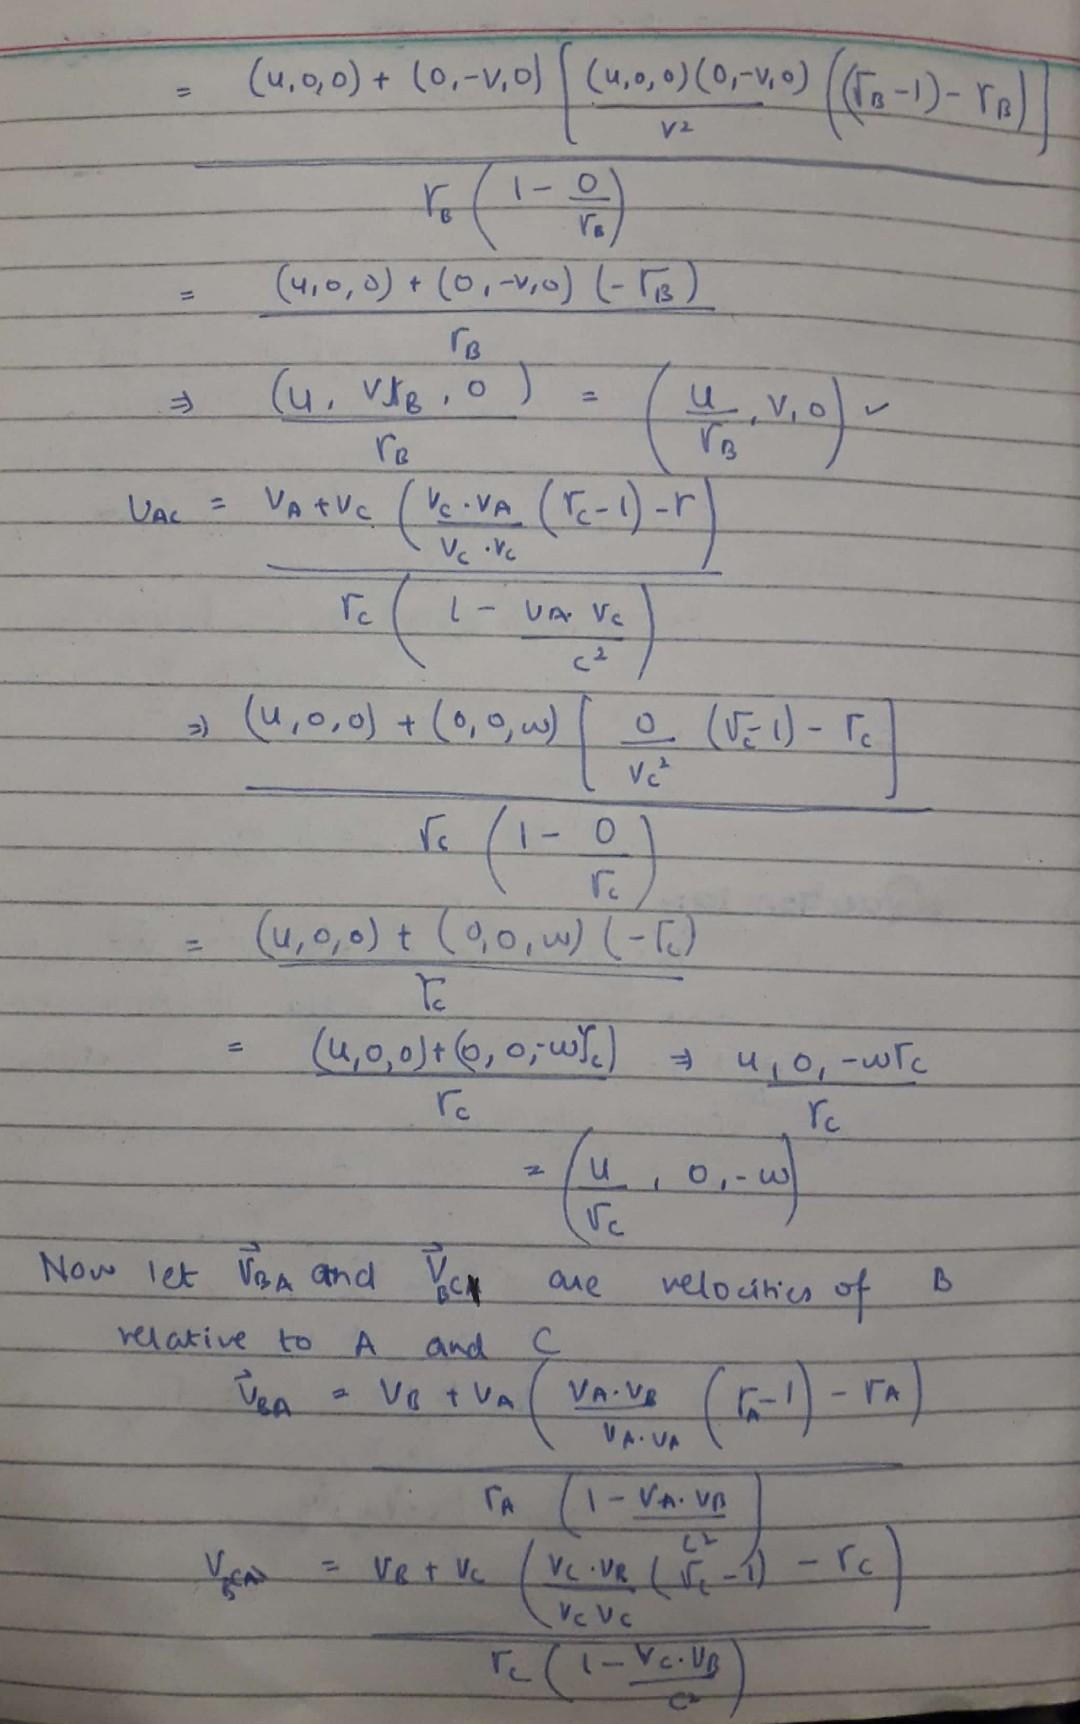 = (u,0,0) + (0,-v,0) [ (u,0,0)(0,-v,0) / v² ((r_B -1) - r_B) ]
r_B ( 1 - 0/r_B )
= (u,0,0) + (0,-v,0) (-r_B) / r_B
⇒ (u, v r_B, 0) / r_B = ( u/r_B , v, 0 ) ✓
v_AC = v_A + v_C ( v_C · v_A / v_C · v_C (r_C -1) - r )
r_C ( 1 - v_A · v_C / c² )
⇒ (u,0,0) + (0,0,w) [ 0 / v_C² (r_C -1) - r_C ]
r_C ( 1 - 0/r_C )
= (u,0,0) + (0,0,w) (-r_C) / r_C
= (u,0,0) + (0,0,-w r_C) / r_C ⇒ u, 0, -w r_C / r_C
= ( u/r_C , 0, -w )
Now let V⃗_BA and V⃗_BC are velocities of B
relative to A and C
v⃗_BA = v_B + v_A ( v_A · v_B / v_A · v_A (r_A -1) - r_A )
r_A ( 1 - v_A · v_B / c² )
V_BC = v_B + v_C ( v_C · v_B / v_C v_C (r_C -1) - r_C )
r_C ( 1 - v_C · v_B / c² )